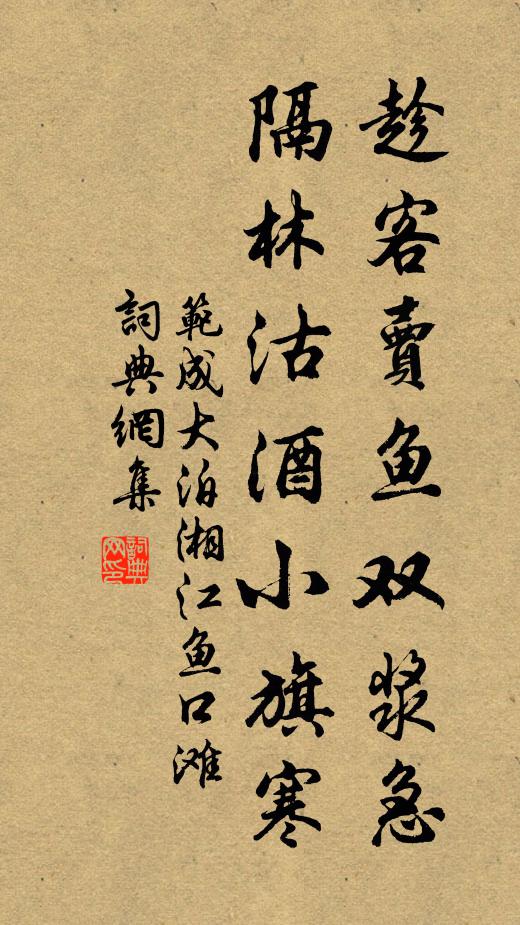 趁客賣鱼双浆急
隔林沽酒小旗寒
範成大泊湘江鱼口滩
詞典網集
詞典網印